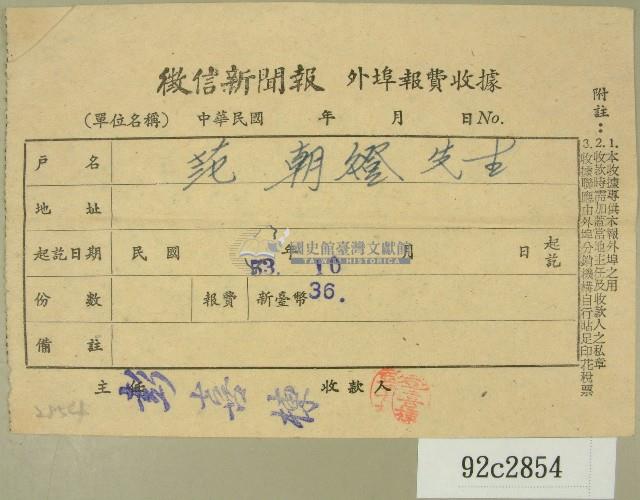 徵信新聞報 外埠報費收據
(單位名稱) 中華民國 年 月 日 No.
戶名 范朝燈先生
地址
起訖日期 民國 年 月 日 起訖
53. 10
份數 報費 新臺幣 36.
備註
主任 收款人
附註：
1.本收據專供本報外埠之用
2.收款時需加蓋當地主任及收款人之私章
3.收據聯應由外埠分銷機構自行貼足印花稅票
國史館臺灣文獻館
TAIWAN HISTORICA
92c2854